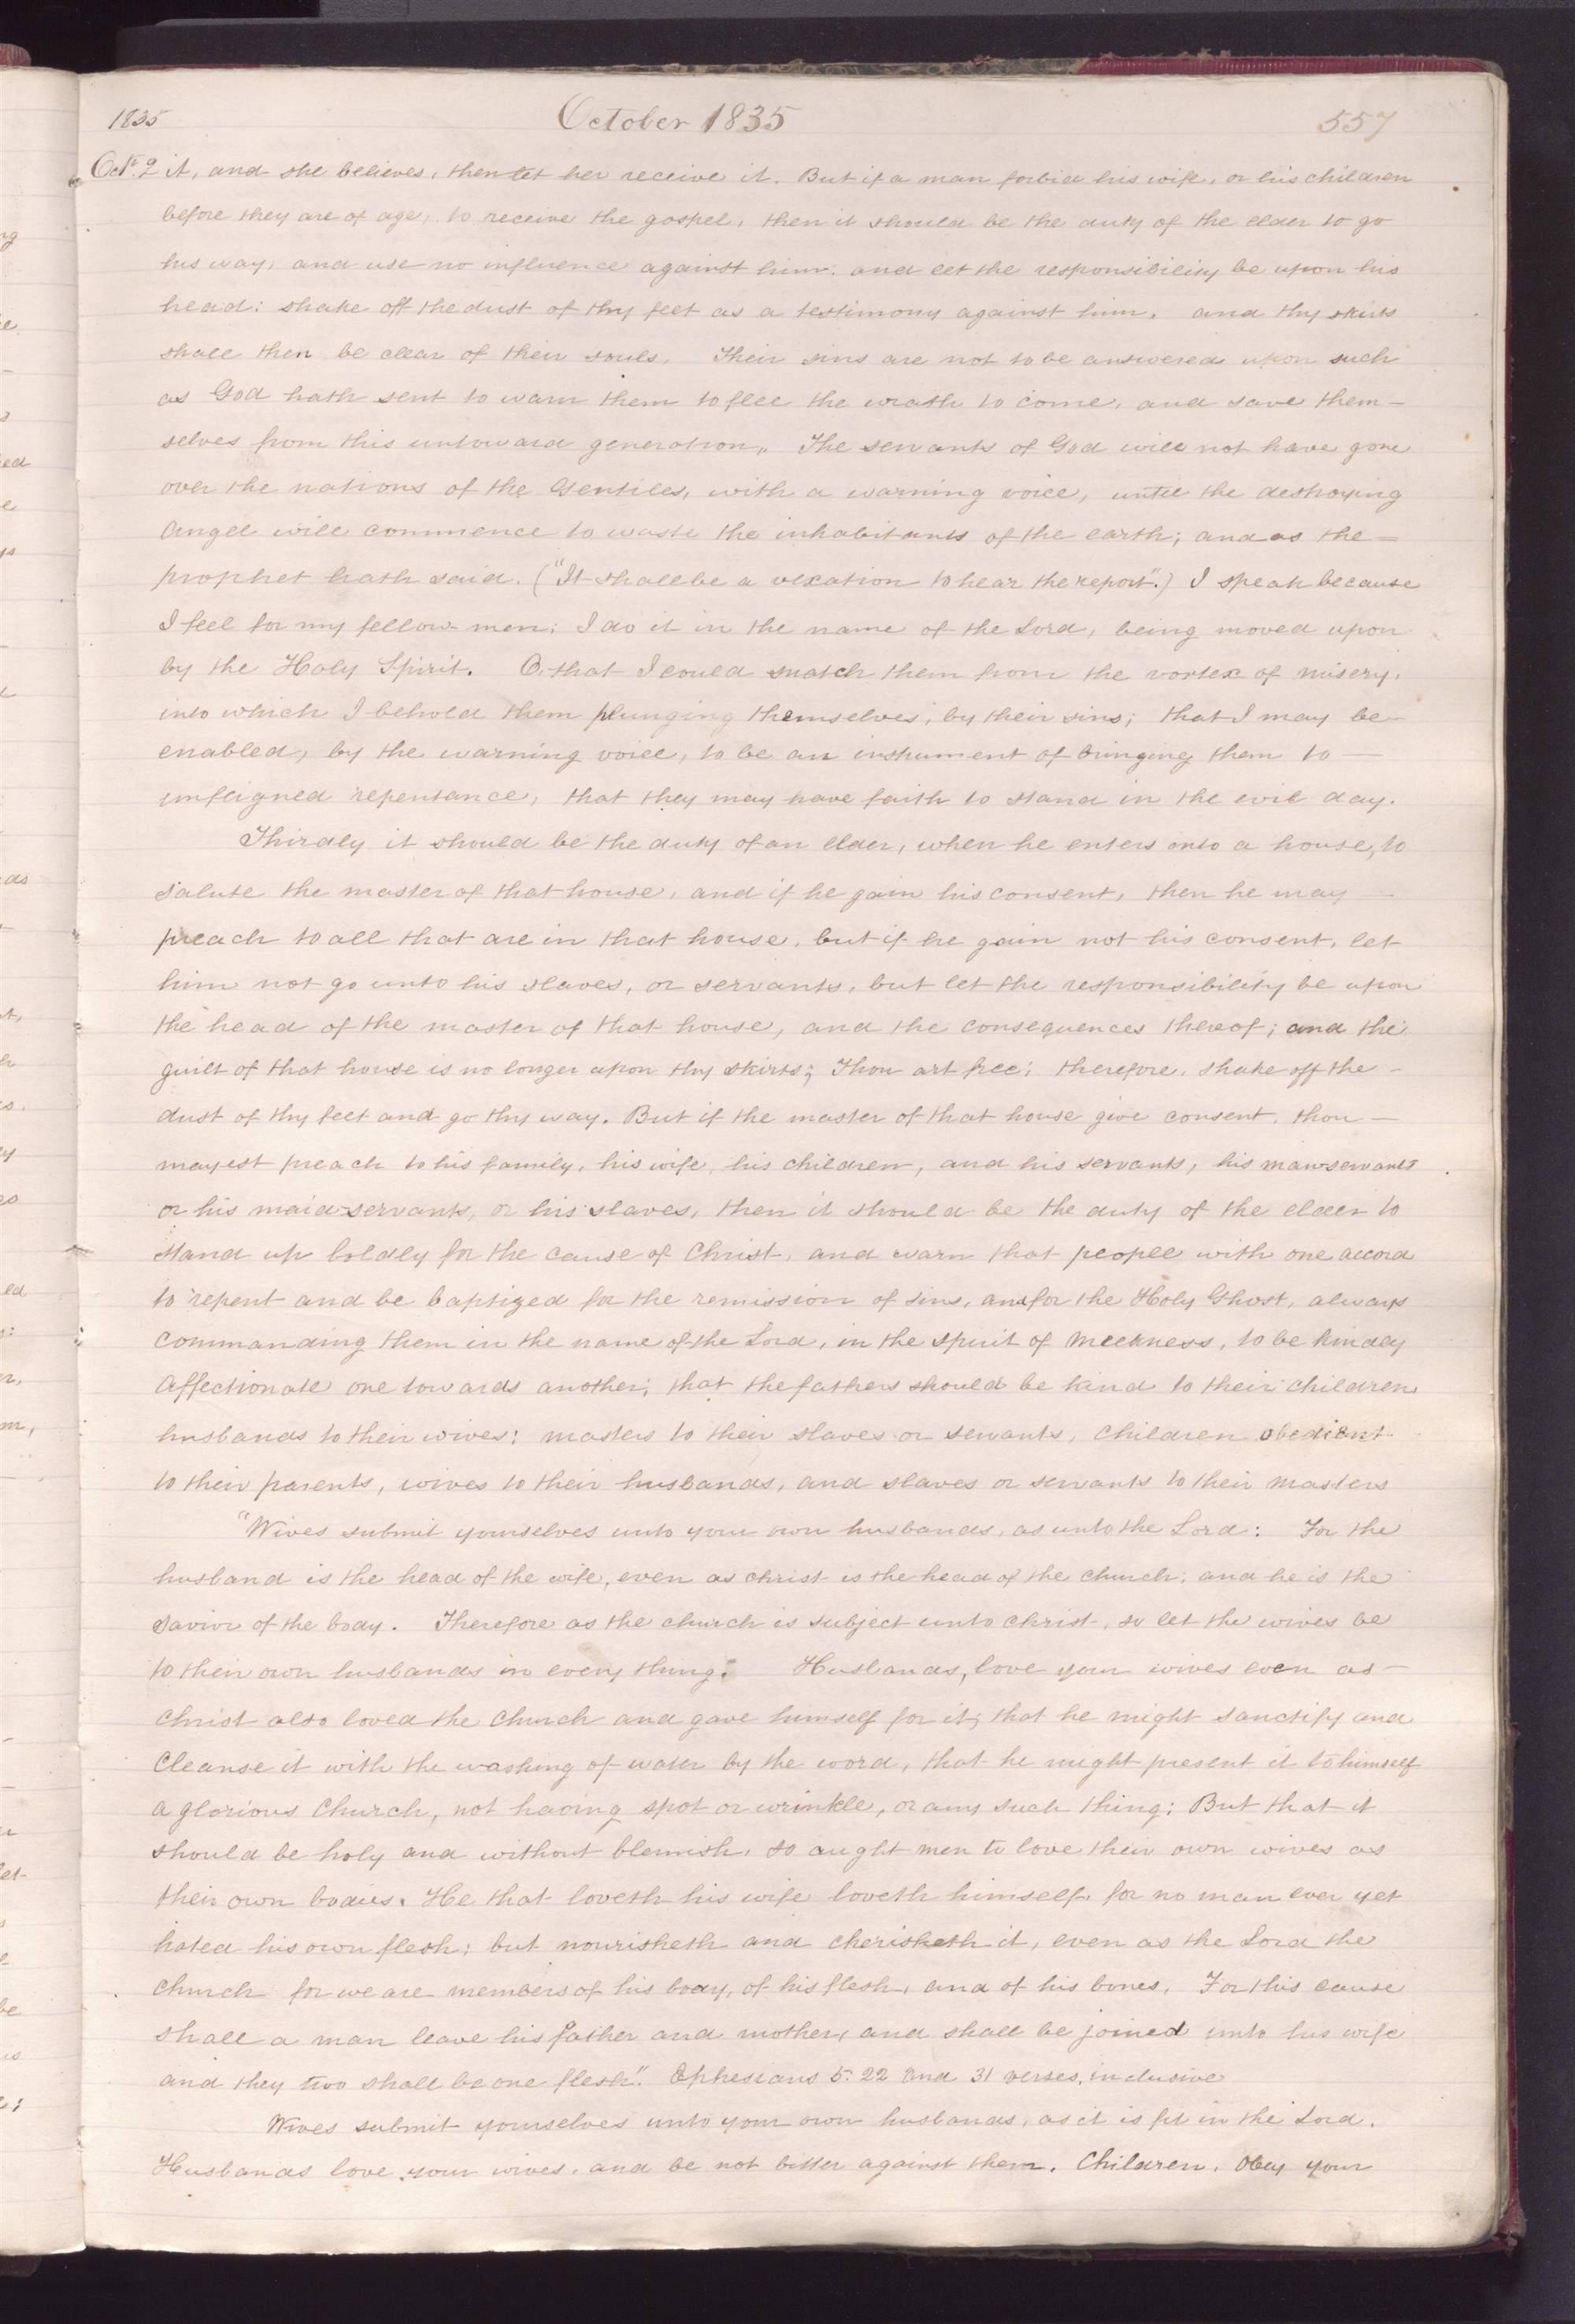 1835 October 1835 557
Oct. 2 it, and she believes, then let her receive it. But if a man forbid his wife, or his children
before they are of age, to receive the gospel, then it should be the duty of the elder to go
his way, and use no influence against him: and let the responsibility be upon his
head: shake off the dust of thy feet as a testimony against him, and thy skirts
shall then be clear of their souls. Their sins are not to be answered upon such
as God hath sent to warn them to flee the wrath to come, and save them-
selves from this untoward generation,. The servants of God will not have gone
over the nations of the Gentiles, with a warning voice, until the destroying
angel will commence to waste the inhabitants of the earth; and as the—
prophet hath said. ("It shall be a vexation to hear the report".) I speak because
I feel for my fellow men: I do it in the name of the Lord, being moved upon
by the Holy Spirit. O, that I could snatch them from the vortex of misery,
into which I behold them plunging themselves, by their sins; that I may be—
enabled, by the warning voice, to be an instrument of bringing them to—
unfeigned repentance, that they may have faith to stand in the evil day.
Thirdly it should be the duty of an elder, when he enters into a house, to
salute the master of that house, and if he gain his consent, then he may—
preach to all that are in that house, but if he gain not his consent, let
him not go unto his slaves, or servants, but let the responsibility be upon
the head of the master of that house, and the consequences thereof; and the
guilt of that house is no longer upon thy skirts; Thou art free; therefore, shake off the—
dust of thy feet and go thy way. But if the master of that house give consent, thou—
mayest preach to his family, his wife, his children, and his servants, his man-servants
or his maid-servants, or his slaves, then it should be the duty of the elder to
stand up boldly for the cause of Christ, and warn that people with one accord
to repent and be baptized for the remission of sins, and for the Holy Ghost, always
commanding them in the name of the Lord, in the spirit of meekness, to be kindly
affectionate one towards another; that the fathers should be kind to their children
husbands to their wives: masters to their slaves or servants, children obedient
to their parents, wives to their husbands, and slaves or servants to their masters
"Wives submit yourselves unto your own husbands, as unto the Lord: For the
husband is the head of the wife, even as christ is the head of the church: and he is the
savior of the body. Therefore as the church is subject unto christ, so let the wives be
to their own husbands in every thing. Husbands, love your wives even as—
christ also loved the church and gave himself for it; that he might sanctify and
cleanse it with the washing of water by the word, that he might present it to himself
a glorious Church, not having spot or wrinkle, or any such thing: But that it
should be holy and without blemish, so aught men to love their own wives as
their own bodies. He that loveth his wife loveth himself, for no man ever yet
hated his own flesh; but nourisheth and cherisheth it, even as the Lord the
church for we are members of his body, of his flesh, and of his bones. For this cause
shall a man leave his father and mother, and shall be joined unto his wife
and they two shall be one flesh". Ephesians 5: 22 and 31 verses, inclusive
Wives submit yourselves unto your own husbands, as it is fit in the Lord.
Husbands love your wives, and be not bitter against them. Children, obey your